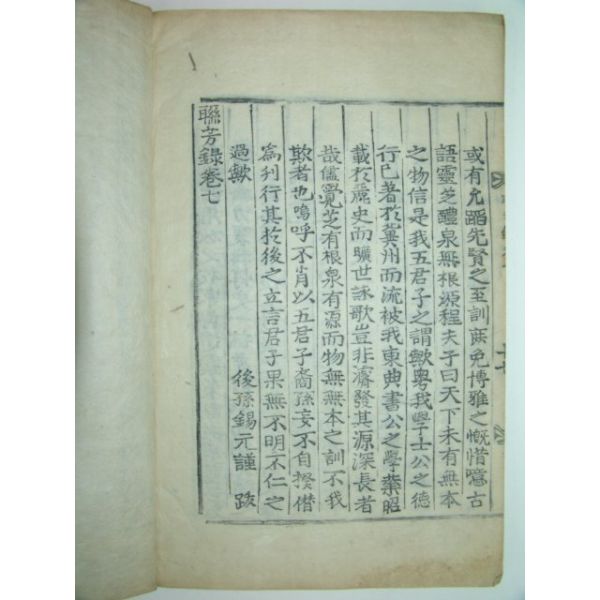 或有允蹈先賢之至訓庶免博雅之慨惜噫古
語靈芝醴泉無根源程夫子曰天下未有無本
之物信是我五君子之謂歟粤我學士公之德
行已著於冀州而流被我東典書公之學業昭
載於麗史而曠世詠歌豈非濬發其源深長者
哉儘覺芝有根泉有源而物無無本之訓不我
欺者也嗚呼不肖以五君子裔孫妄不自揆僭
爲列行其於後之立言君子果無不明不仁之
過歟
後孫錫元謹 跋
聯芳錄卷七